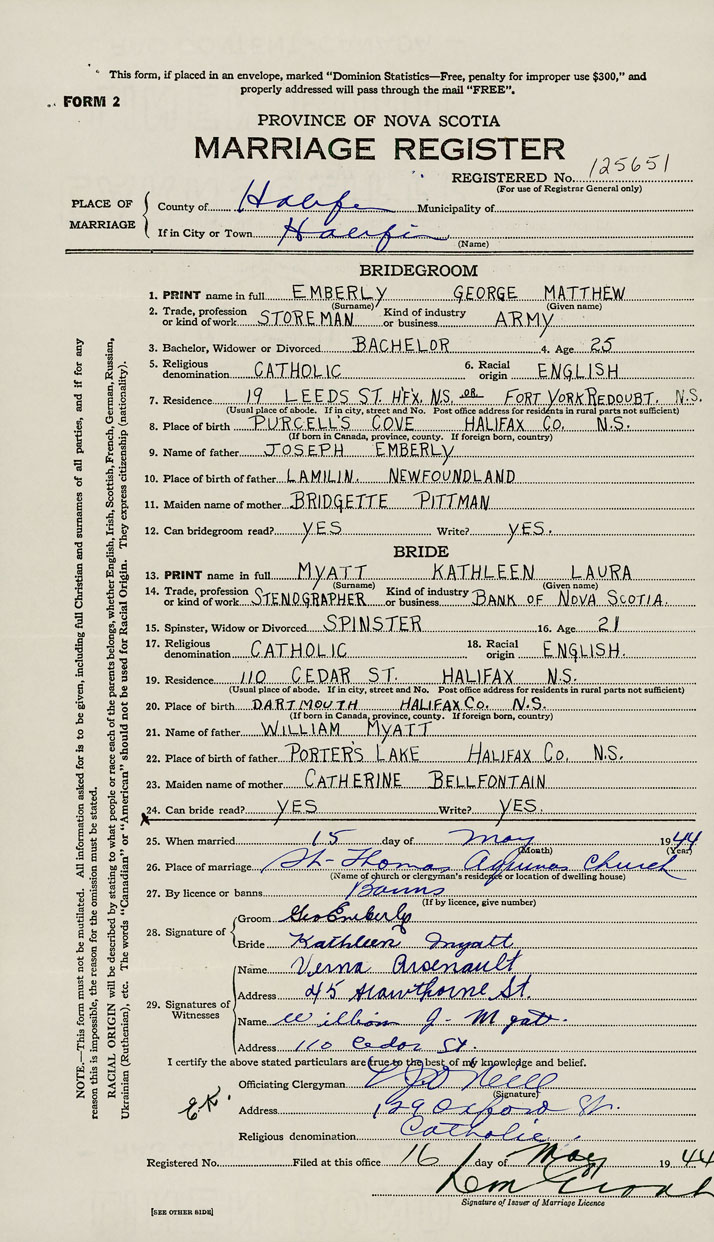 This form, if placed in an envelope, marked "Dominion Statistics—Free, penalty for improper use $300," and
properly addressed will pass through the mail "FREE".
FORM 2
PROVINCE OF NOVA SCOTIA
MARRIAGE REGISTER
REGISTERED No. 125651
(For use of Registrar General only)
PLACE OF MARRIAGE
County of Halifax Municipality of
If in City or Town Halifax
(Name)
BRIDEGROOM
1. PRINT name in full EMBERLY GEORGE MATTHEW
(Surname) (Given name)
2. Trade, profession or kind of work STOREMAN Kind of industry or business ARMY
3. Bachelor, Widower or Divorced BACHELOR 4. Age 25
5. Religious denomination CATHOLIC 6. Racial origin ENGLISH
7. Residence 19 LEEDS ST. H'FX. N.S. OR FORT YORK REDOUBT. N.S.
(Usual place of abode. If in city, street and No. Post office address for residents in rural parts not sufficient)
8. Place of birth PURCELL'S COVE HALIFAX Co. N.S.
(If born in Canada, province, county. If foreign born, country)
9. Name of father JOSEPH EMBERLY
10. Place of birth of father LAMILIN. NEWFOUNDLAND
11. Maiden name of mother BRIDGETTE PITTMAN
12. Can bridegroom read? YES Write? YES.
BRIDE
13. PRINT name in full MYATT KATHLEEN LAURA
(Surname) (Given name)
14. Trade, profession or kind of work STENOGRAPHER Kind of industry or business BANK OF NOVA SCOTIA.
15. Spinster, Widow or Divorced SPINSTER 16. Age 21
17. Religious denomination CATHOLIC 18. Racial origin ENGLISH.
19. Residence 110 CEDAR ST. HALIFAX N.S.
(Usual place of abode. If in city, street and No. Post office address for residents in rural parts not sufficient)
20. Place of birth DARTMOUTH HALIFAX Co. N.S.
(If born in Canada, province, county. If foreign born, country)
21. Name of father WILLIAM MYATT
22. Place of birth of father PORTER'S LAKE HALIFAX Co. N.S.
23. Maiden name of mother CATHERINE BELLFONTAIN
24. Can bride read? YES Write? YES.
25. When married 15 day of May 1944
(Month) (Year)
26. Place of marriage St. Thomas Aquinas Church
(Name of church or clergyman's residence or location of dwelling house)
27. By licence or banns Banns
(If by licence, give number)
28. Signature of
Groom Geo Emberly
Bride Kathleen Myatt
29. Signatures of Witnesses
Name Verna Arsenault
Address 45 Hawthorne St.
Name William J. Myatt.
Address 110 Cedar St.
I certify the above stated particulars are true to the best of my knowledge and belief.
Officiating Clergyman
(Signature)
Address 129 Oxford St.
Religious denomination Catholic.
Registered No. Filed at this office 16 day of May 1944
Signature of Issuer of Marriage Licence
[SEE OTHER SIDE]
NOTE.—This form must not be mutilated. All information asked for is to be given, including full Christian and surnames of all parties, and if for any
reason this is impossible, the reason for the omission must be stated.
RACIAL ORIGIN will be described by stating to what people or race each of the parents belongs, whether English, Irish, Scottish, French, German, Russian,
Ukrainian (Ruthenian), etc. The words "Canadian" or "American" should not be used for Racial Origin. They express citizenship (nationality).